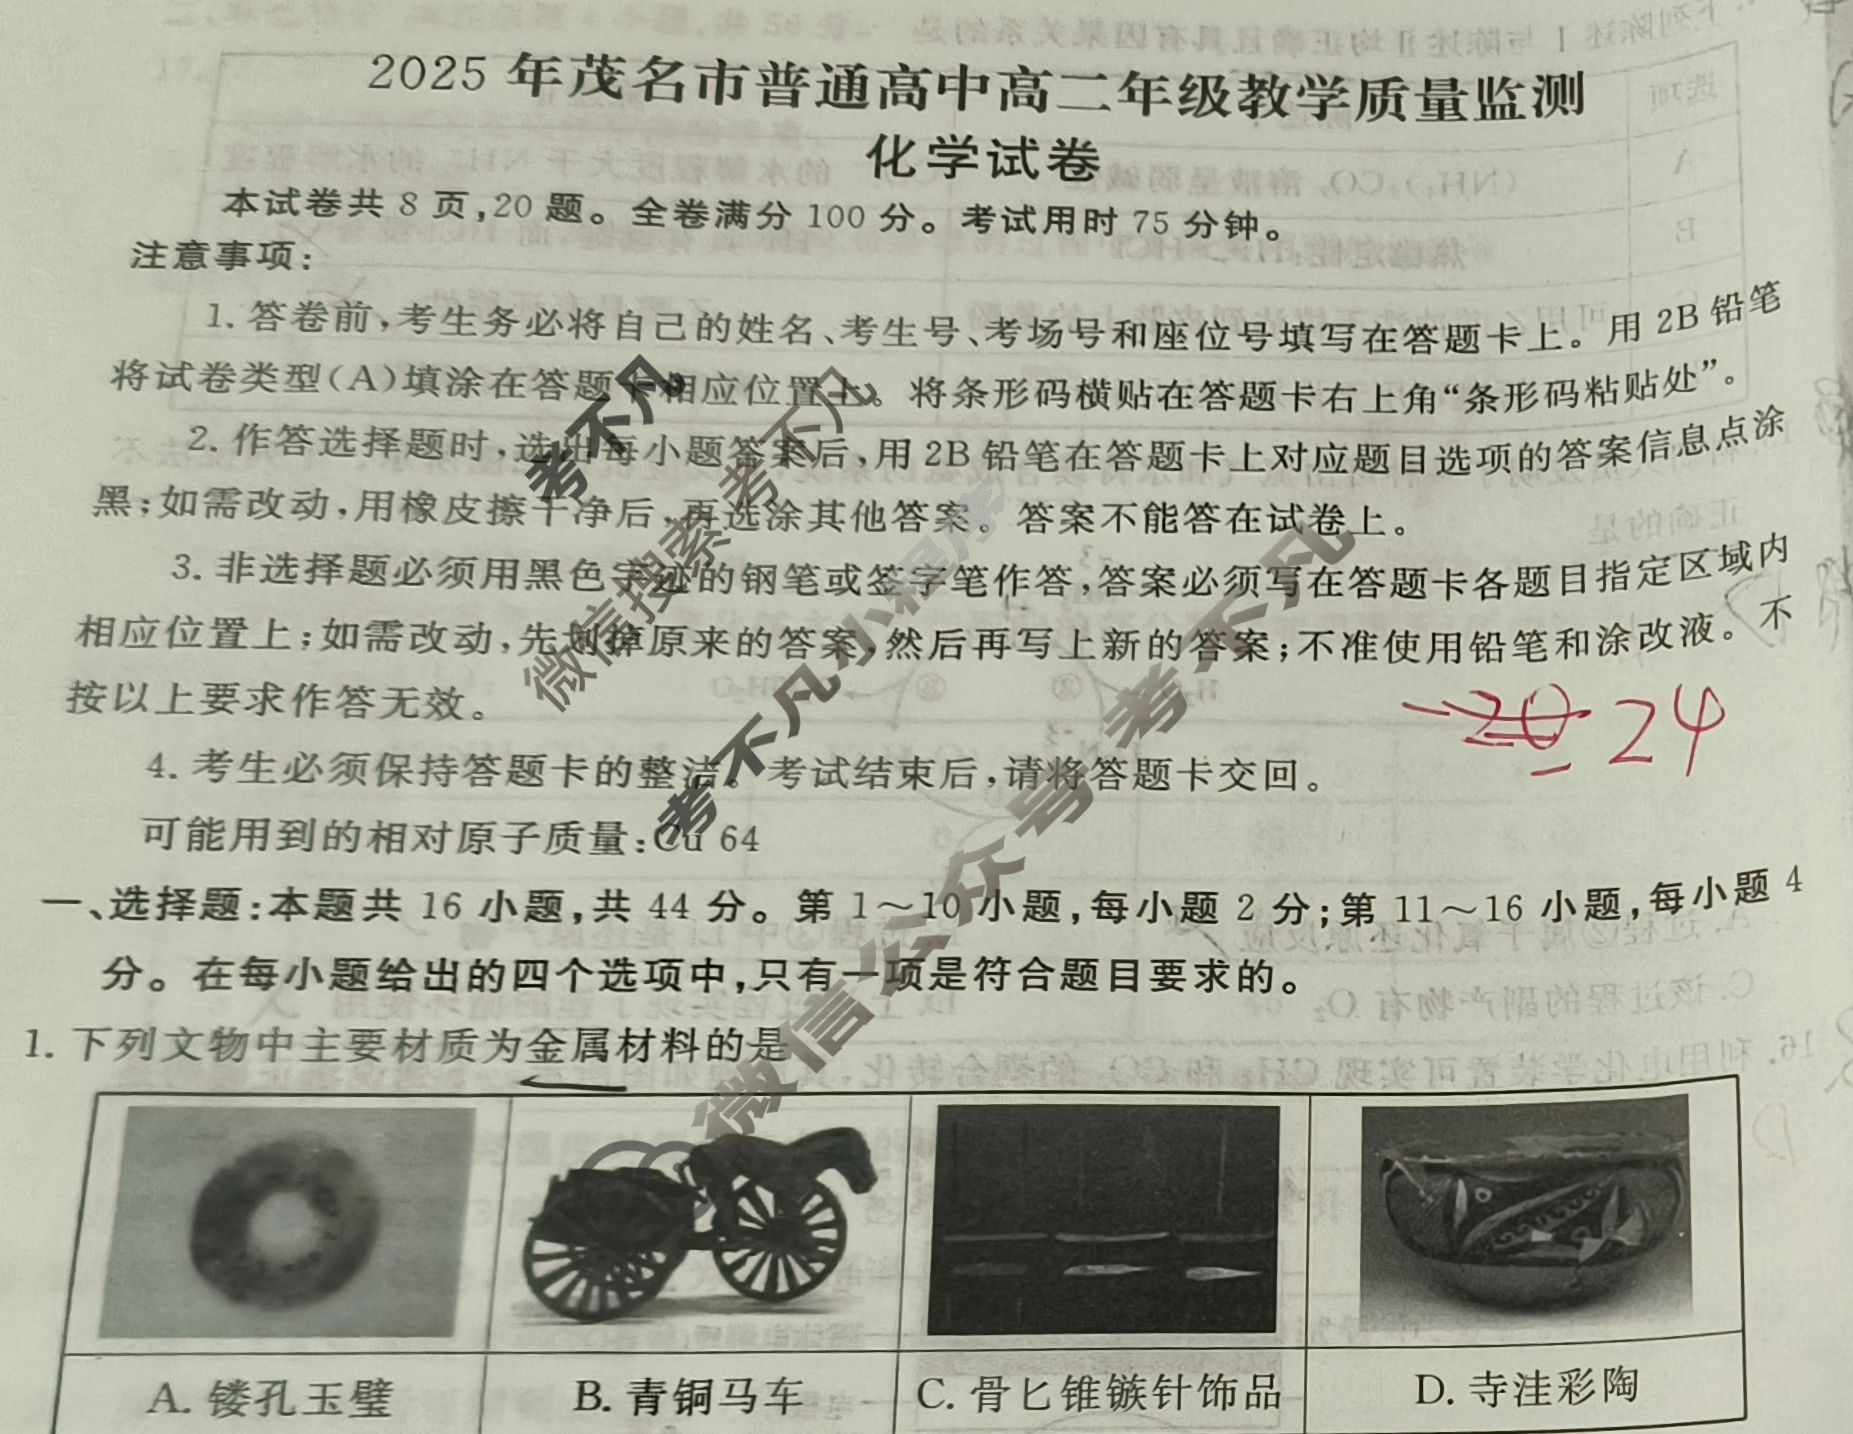 2025 年茂名市普通高中高二年级教学质量监测
化学试卷
本试卷共 8 页,20 题。全卷满分 100 分。考试用时 75 分钟。
注意事项:
1. 答卷前,考生务必将自己的姓名、考生号、考场号和座位号填写在答题卡上。用 2B 铅笔
将试卷类型(A)填涂在答题卡相应位置上。将条形码横贴在答题卡右上角“条形码粘贴处”。
2. 作答选择题时,选出每小题答案后,用 2B 铅笔在答题卡上对应题目选项的答案信息点涂
黑;如需改动,用橡皮擦干净后,再选涂其他答案。答案不能答在试卷上。
3. 非选择题必须用黑色字迹的钢笔或签字笔作答,答案必须写在答题卡各题目指定区域内
相应位置上;如需改动,先划掉原来的答案,然后再写上新的答案;不准使用铅笔和涂改液。不
按以上要求作答无效。
24
4. 考生必须保持答题卡的整洁。考试结束后,请将答题卡交回。
可能用到的相对原子质量:Cu 64
一、选择题:本题共 16 小题,共 44 分。第 1~10 小题,每小题 2 分;第 11~16 小题,每小题 4
分。在每小题给出的四个选项中,只有一项是符合题目要求的。
1. 下列文物中主要材质为金属材料的是
A. 镂孔玉璧
B. 青铜马车
C. 骨匕锥镞针饰品
D. 寺洼彩陶
考不凡
微信搜索 考不凡
考不凡小程序
微信公众号 考不凡